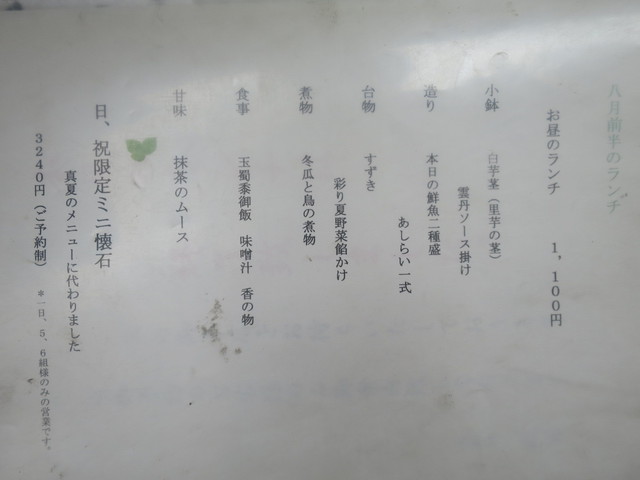 八月前半のランチ
お昼のランチ 1,100円
小鉢 白芋茎(里芋の茎)
雲丹ソース掛け
造り 本日の鮮魚二種盛
あしらい一式
台物 すずき
彩り夏野菜餡かけ
煮物 冬瓜と鳥の煮物
食事 玉蜀黍御飯 味噌汁 香の物
甘味 抹茶のムース
日、祝限定ミニ懐石
真夏のメニューに代わりました
3240円(ご予約制) *一日、5、6組様のみの営業です。